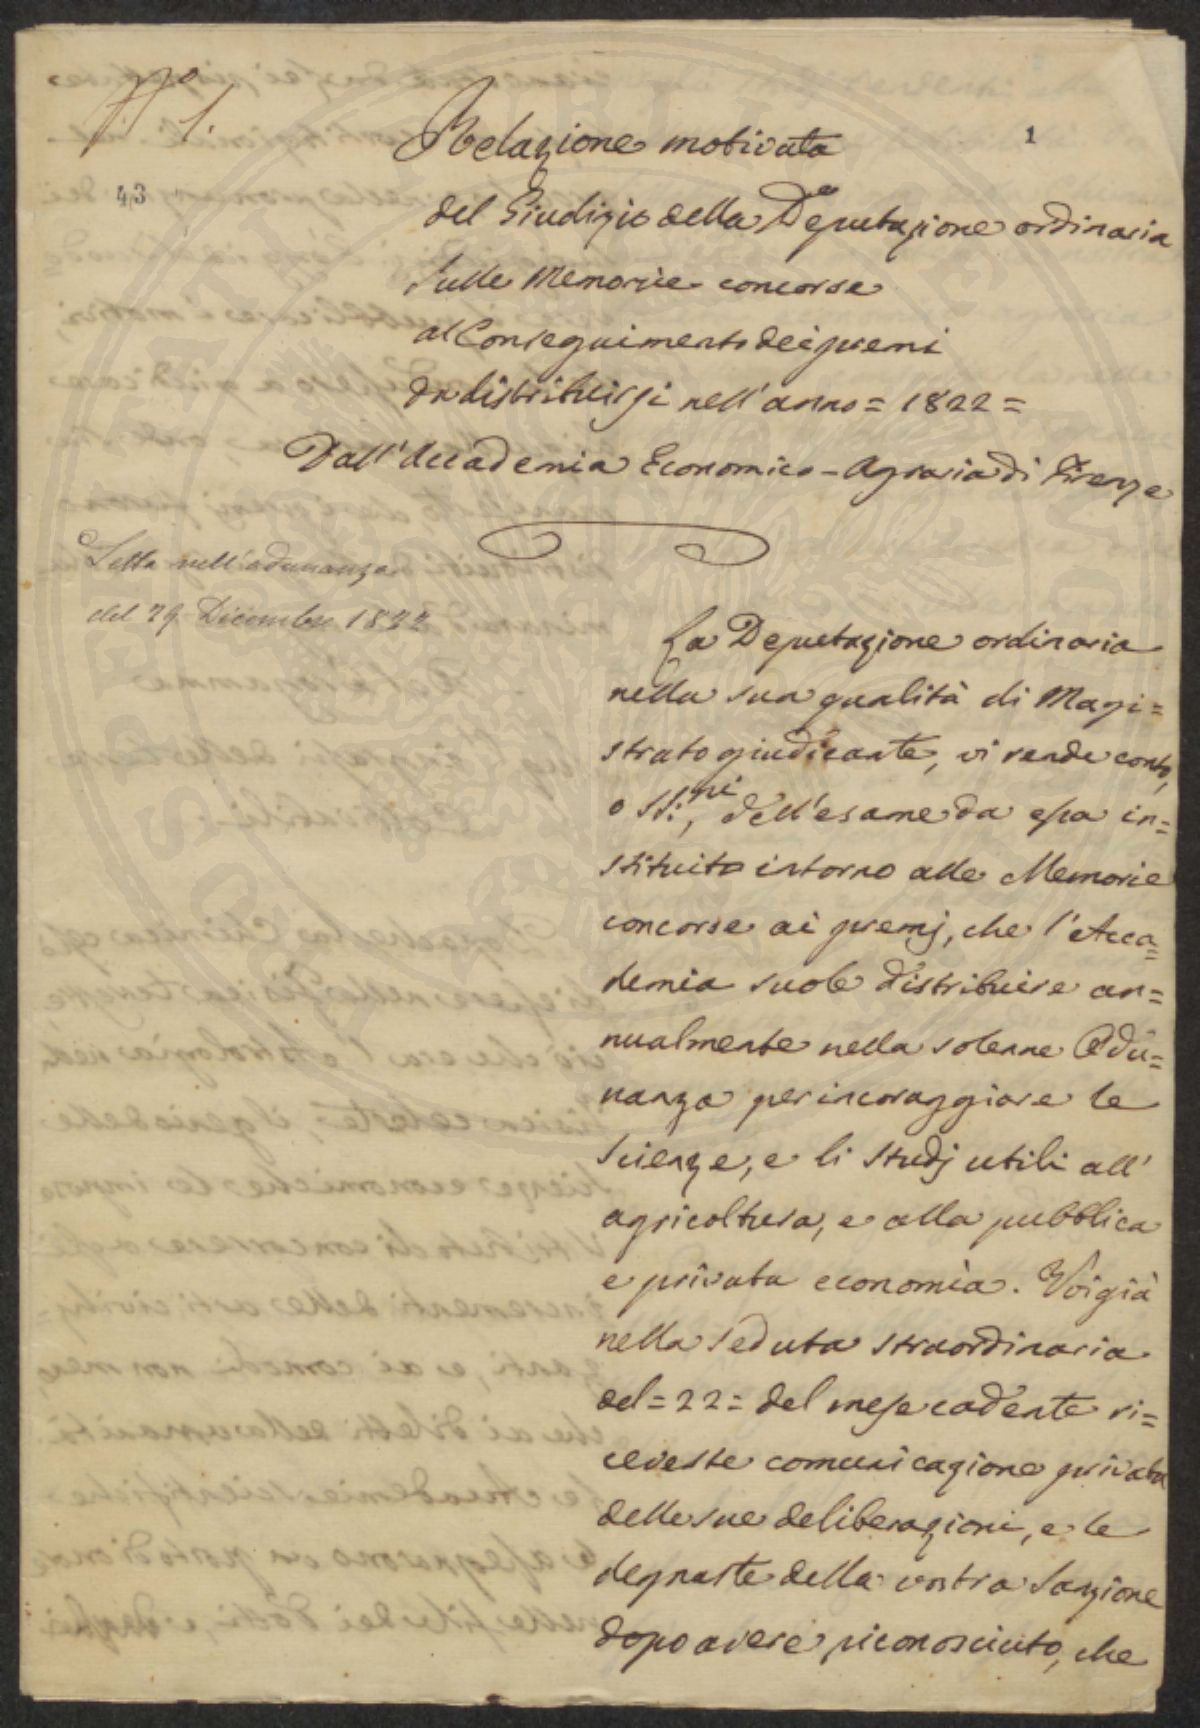 N.° 1.
1
43
Relazione motivata
del Giudizio della Deputazione ordinaria
sulle Memorie concorse
al Conseguimento dei premi
da distribuirsi nell'anno = 1822 =
Dall'Accademia Economico-Agraria di Firenze
Letta nell'adunanza
del 29 Dicembre 1822
La Deputazione ordinaria
nella sua qualità di Magi=
strato giudicante, vi rende conto,
o SS.ni, dell'esame da essa in=
stituito intorno alle Memorie
concorse ai premj, che l'Acca=
demia suole distribuire an=
nualmente nella solenne Adu=
nanza per incoraggiare le
scienze, e li studj utili all'
agricoltura, e alla pubblica
e privata economia. Voi già
nella seduta straordinaria
del = 22 = del mese cadente ri=
ceveste comunicazione privata
delle sue deliberazioni, e le
degnaste della vostra sanzione
dopo avere riconosciuto, che